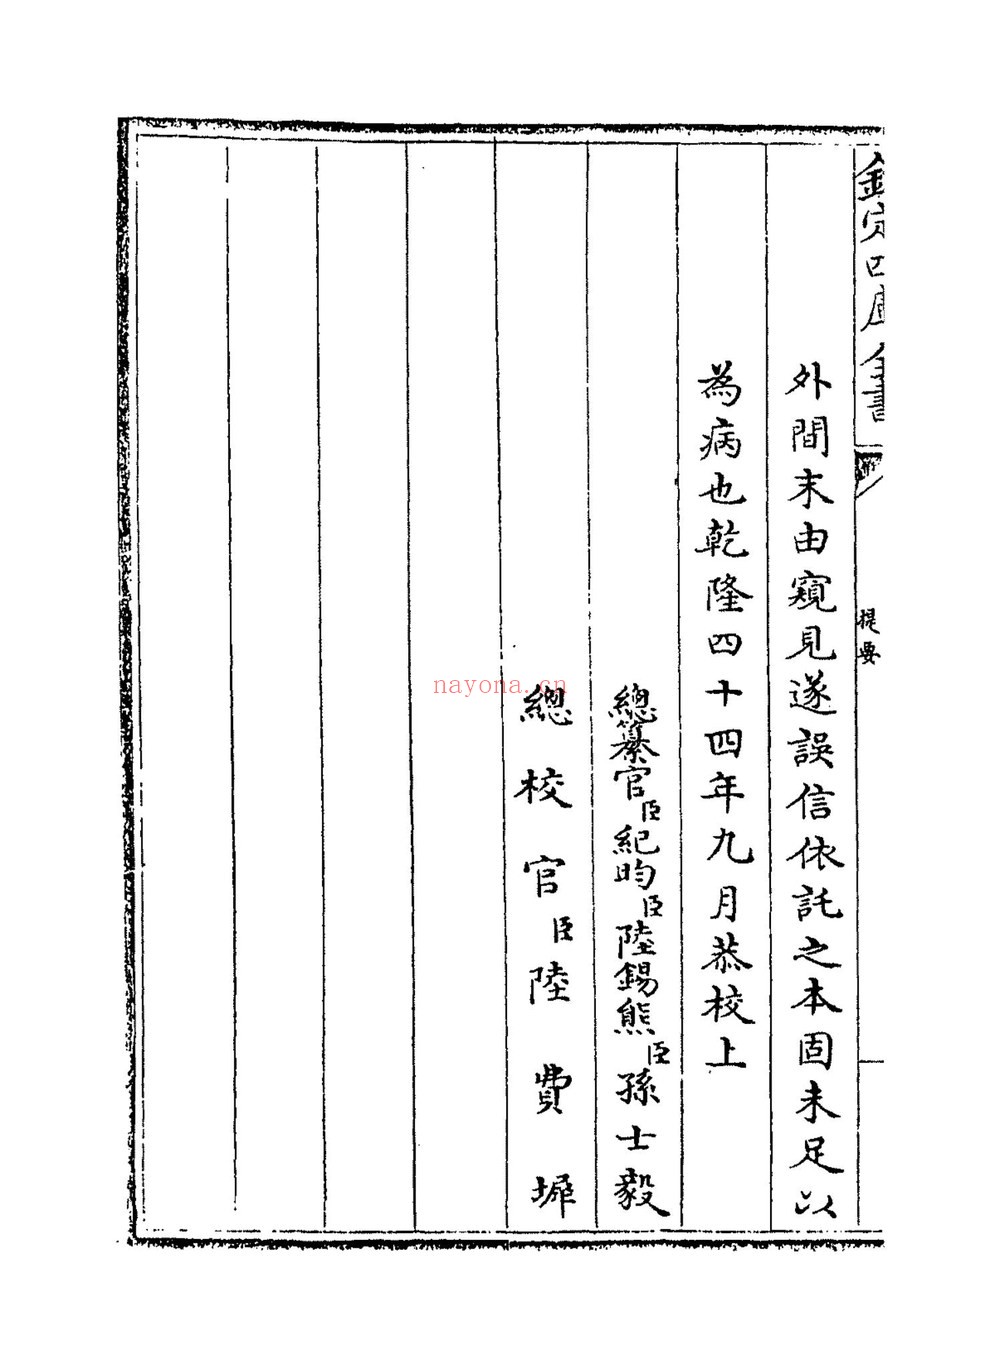 欽定四庫全書
提要
外間末由窺見遂誤信依託之本固未足以
為病也乾隆四十四年九月恭校上
總纂官臣紀昀臣陸錫熊臣孫士毅
總校官臣陸費墀
nayona.cn